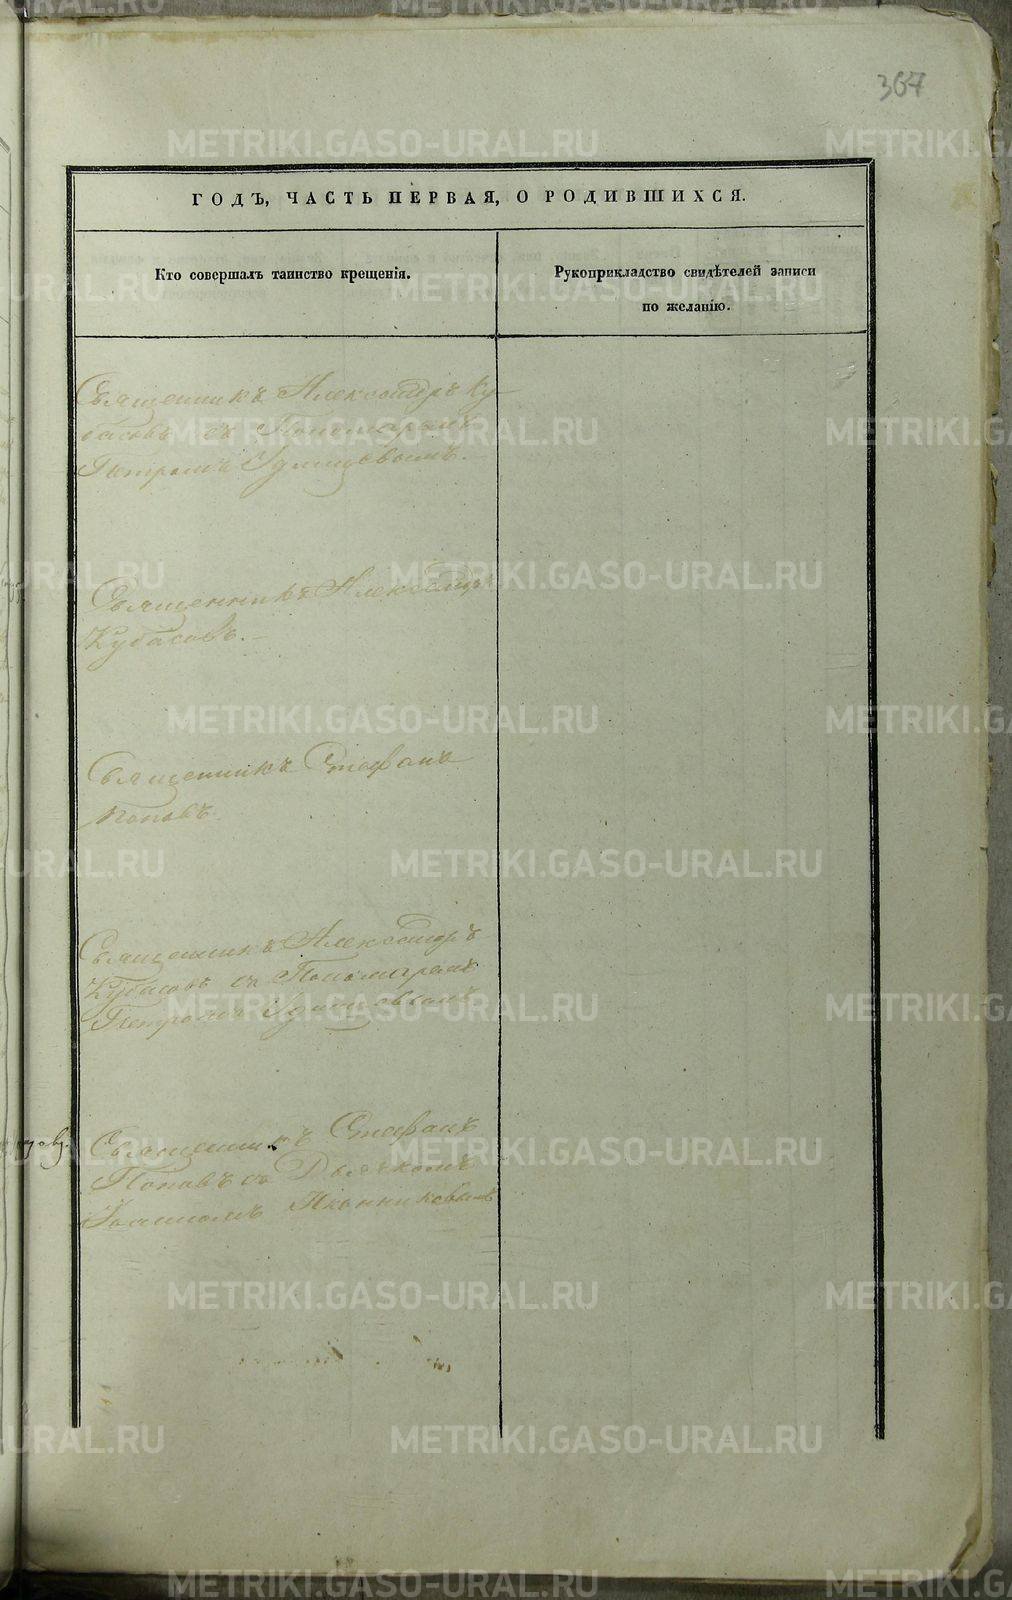 367
ГОДЪ, ЧАСТЬ ПЕРВАЯ, О РОДИВШИХСЯ.
Кто совершалъ таинство крещенія.
Рукоприкладство свидѣтелей записи
по желанію.
Священникъ Александръ Ку-
басовъ съ Пономаремъ
Петромъ
Священникъ Александръ
Кубасовъ.
Священникъ Стефанъ
Поповъ
Священникъ Александръ
Кубасовъ съ Пономаремъ
Петромъ
Священникъ Стефанъ
Поповъ съ Дьячкомъ
Іоанномъ
METRIKI.GASO-URAL.RU